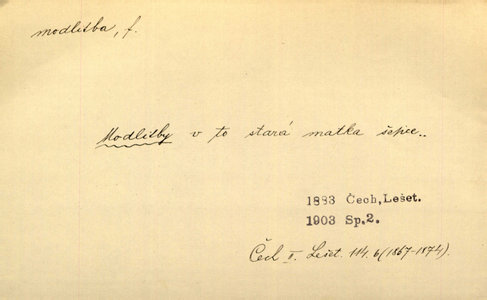 modlitba, f.
Modlitby v to stará matka šepce..
1883 Čech, Lešet.
1903 Sp.2.
Čech I. Lešet. 114. 6 (1867-1874).